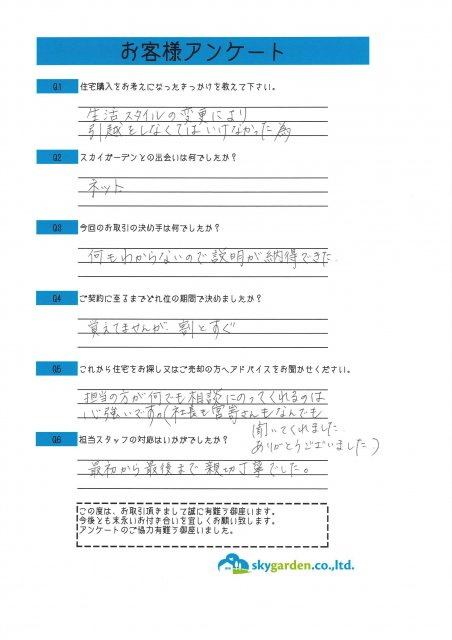 お客様アンケート
Q1 住宅購入をお考えになったきっかけを教えて下さい。
生活スタイルの変更により
引越をしなくてはいけなかった為
Q2 スカイガーデンとの出会いは何でしたか？
ネット
Q3 今回のお取引の決め手は何でしたか？
何もわからないので説明が納得できた。
Q4 ご契約に至るまでどれ位の期間で決めましたか？
覚えてませんが、割とすぐ
Q5 これから住宅をお探し又はご売却の方へアドバイスをお聞かせください。
担当の方が何でも相談にのってくれるのは
心強いです。(社長も宮嵜さんもなんでも
聞いてくれました
ありがとうございました)
Q6 担当スタッフの対応はいかがでしたか？
最初から最後まで親切丁寧でした。
この度は、お取引頂きまして誠に有難う御座います。
今後とも末永いお付き合いを宜しくお願い致します。
アンケートのご協力有難う御座いました。
skygarden.co.,ltd.